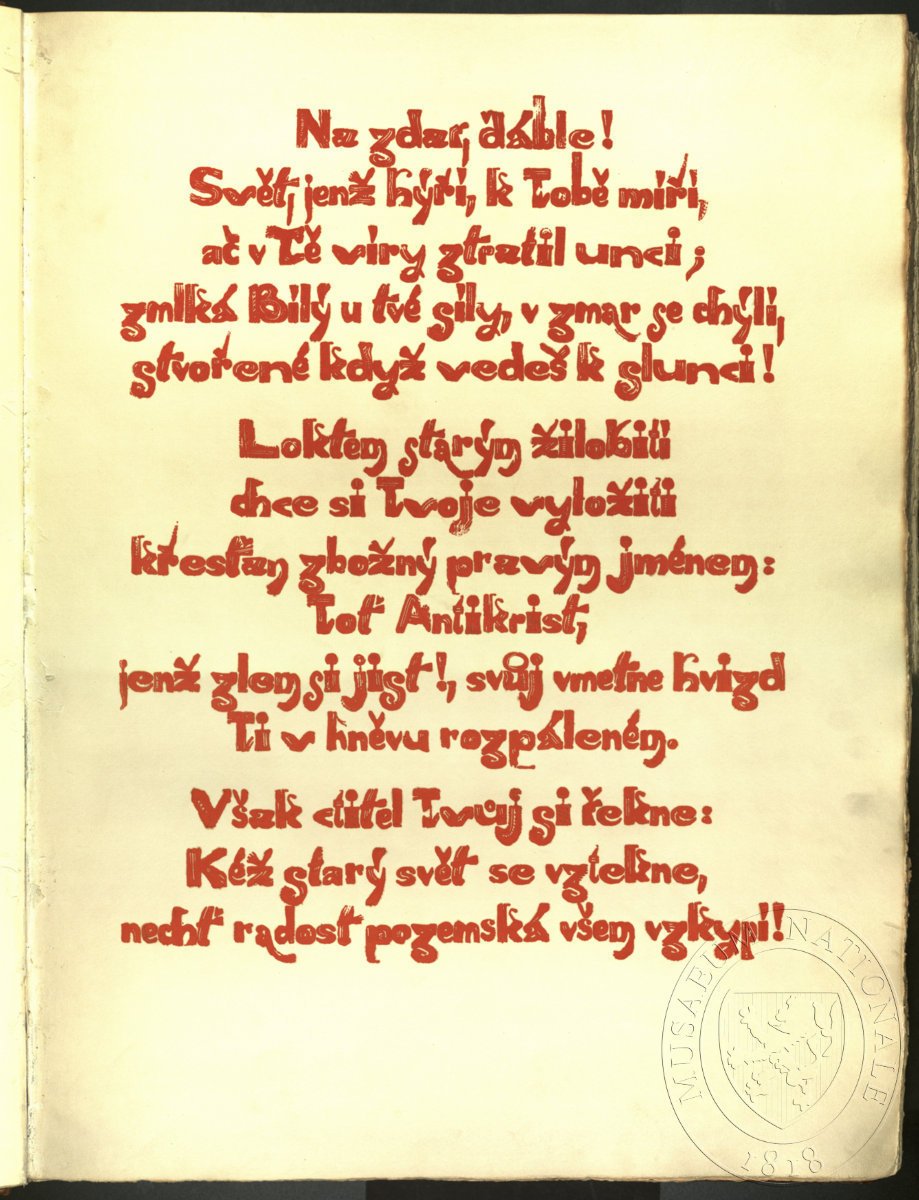 Na zdar, ďáble!
Svět, jenž hýří, k Tobě míří,
ač v Tě víry ztratil unci;
zmlká Bílý u tvé síly, v zmar se chýlí,
stvořené když vedeš k slunci!
Loktem starým žilobití
chce si Tvoje vyložiti
křesťan zbožný pravým jménem:
Toť Antikrist,
jenž zlem si jist!, svůj vmetne hvizd
Ti v hněvu rozpáleném.
Však ctitel Tvůj si řekne:
Kéž starý svět se vztekne,
nechť radost pozemská všem vzkypí!
MUSAEUM NATIONALE
1818